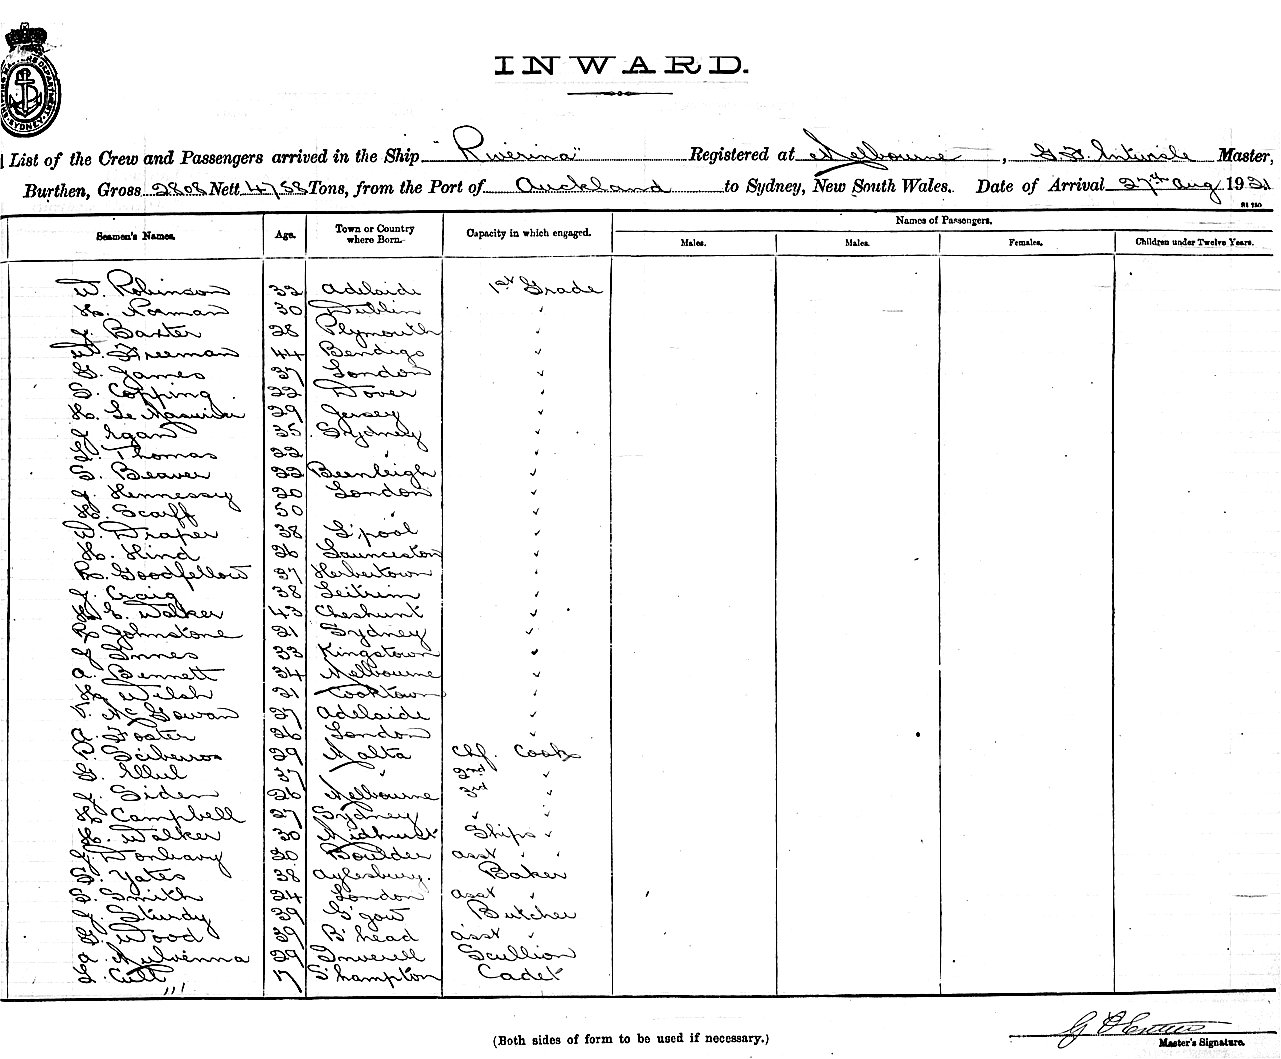 INWARD.
List of the Crew and Passengers arrived in the Ship "Riverina" Registered at Melbourne, G. F. Master,
Burthen, Gross 2808 Nett 4758 Tons, from the Port of Auckland to Sydney, New South Wales. Date of Arrival 27th Aug 1921
Names of Passengers.
Seamen's Names. Age. Town or Country where Born. Capacity in which engaged. Males. Males. Females. Children under Twelve Years.
W. Robinson 32 Adelaide 1st Grade
H. Norman 30 Dublin "
J. Baxter 28 Plymouth "
W. Freeman 44 Bendigo "
G. James 37 London "
S. Copping 22 Dover "
H. Le 29 Jersey "
J. Egan 35 Sydney "
Thomas 22 " "
S. Beaver 22 Beenleigh "
J. Hennessy 20 London "
H. Scarff 50 " "
W. Draper 38 L'pool "
H. Hind 26 Launceston "
R. Goodfellow 37 Herbertown "
J. Craig 38 Leitrim "
H. E. Walker 43 Cheshunt "
Johnstone 21 Sydney "
J. Innes 33 Kingstown "
A. Bennett 34 Melbourne "
H. Welsh 21 Cooktown "
McGowan 27 Adelaide "
A. Foster 26 London "
Sciberros 29 Malta Chf. Cook
G. Ellul 37 " 2nd "
J. Siden 26 Melbourne 3rd "
H. Campbell 27 Sydney " "
H. Walker 30 Midhurst Ships "
J. Donleavy 20 Boulder asst " "
Yates 38 Aylesbury. Baker
S. Smith 24 London asst "
J. Sturdy 39 G'gow Butcher
G. Wood 39 B'head asst "
A. Mulvenna 29 Inverell Scullion
L. Cutt 17 S'hampton Cadet
(Both sides of form to be used if necessary.)
Master's Signature.